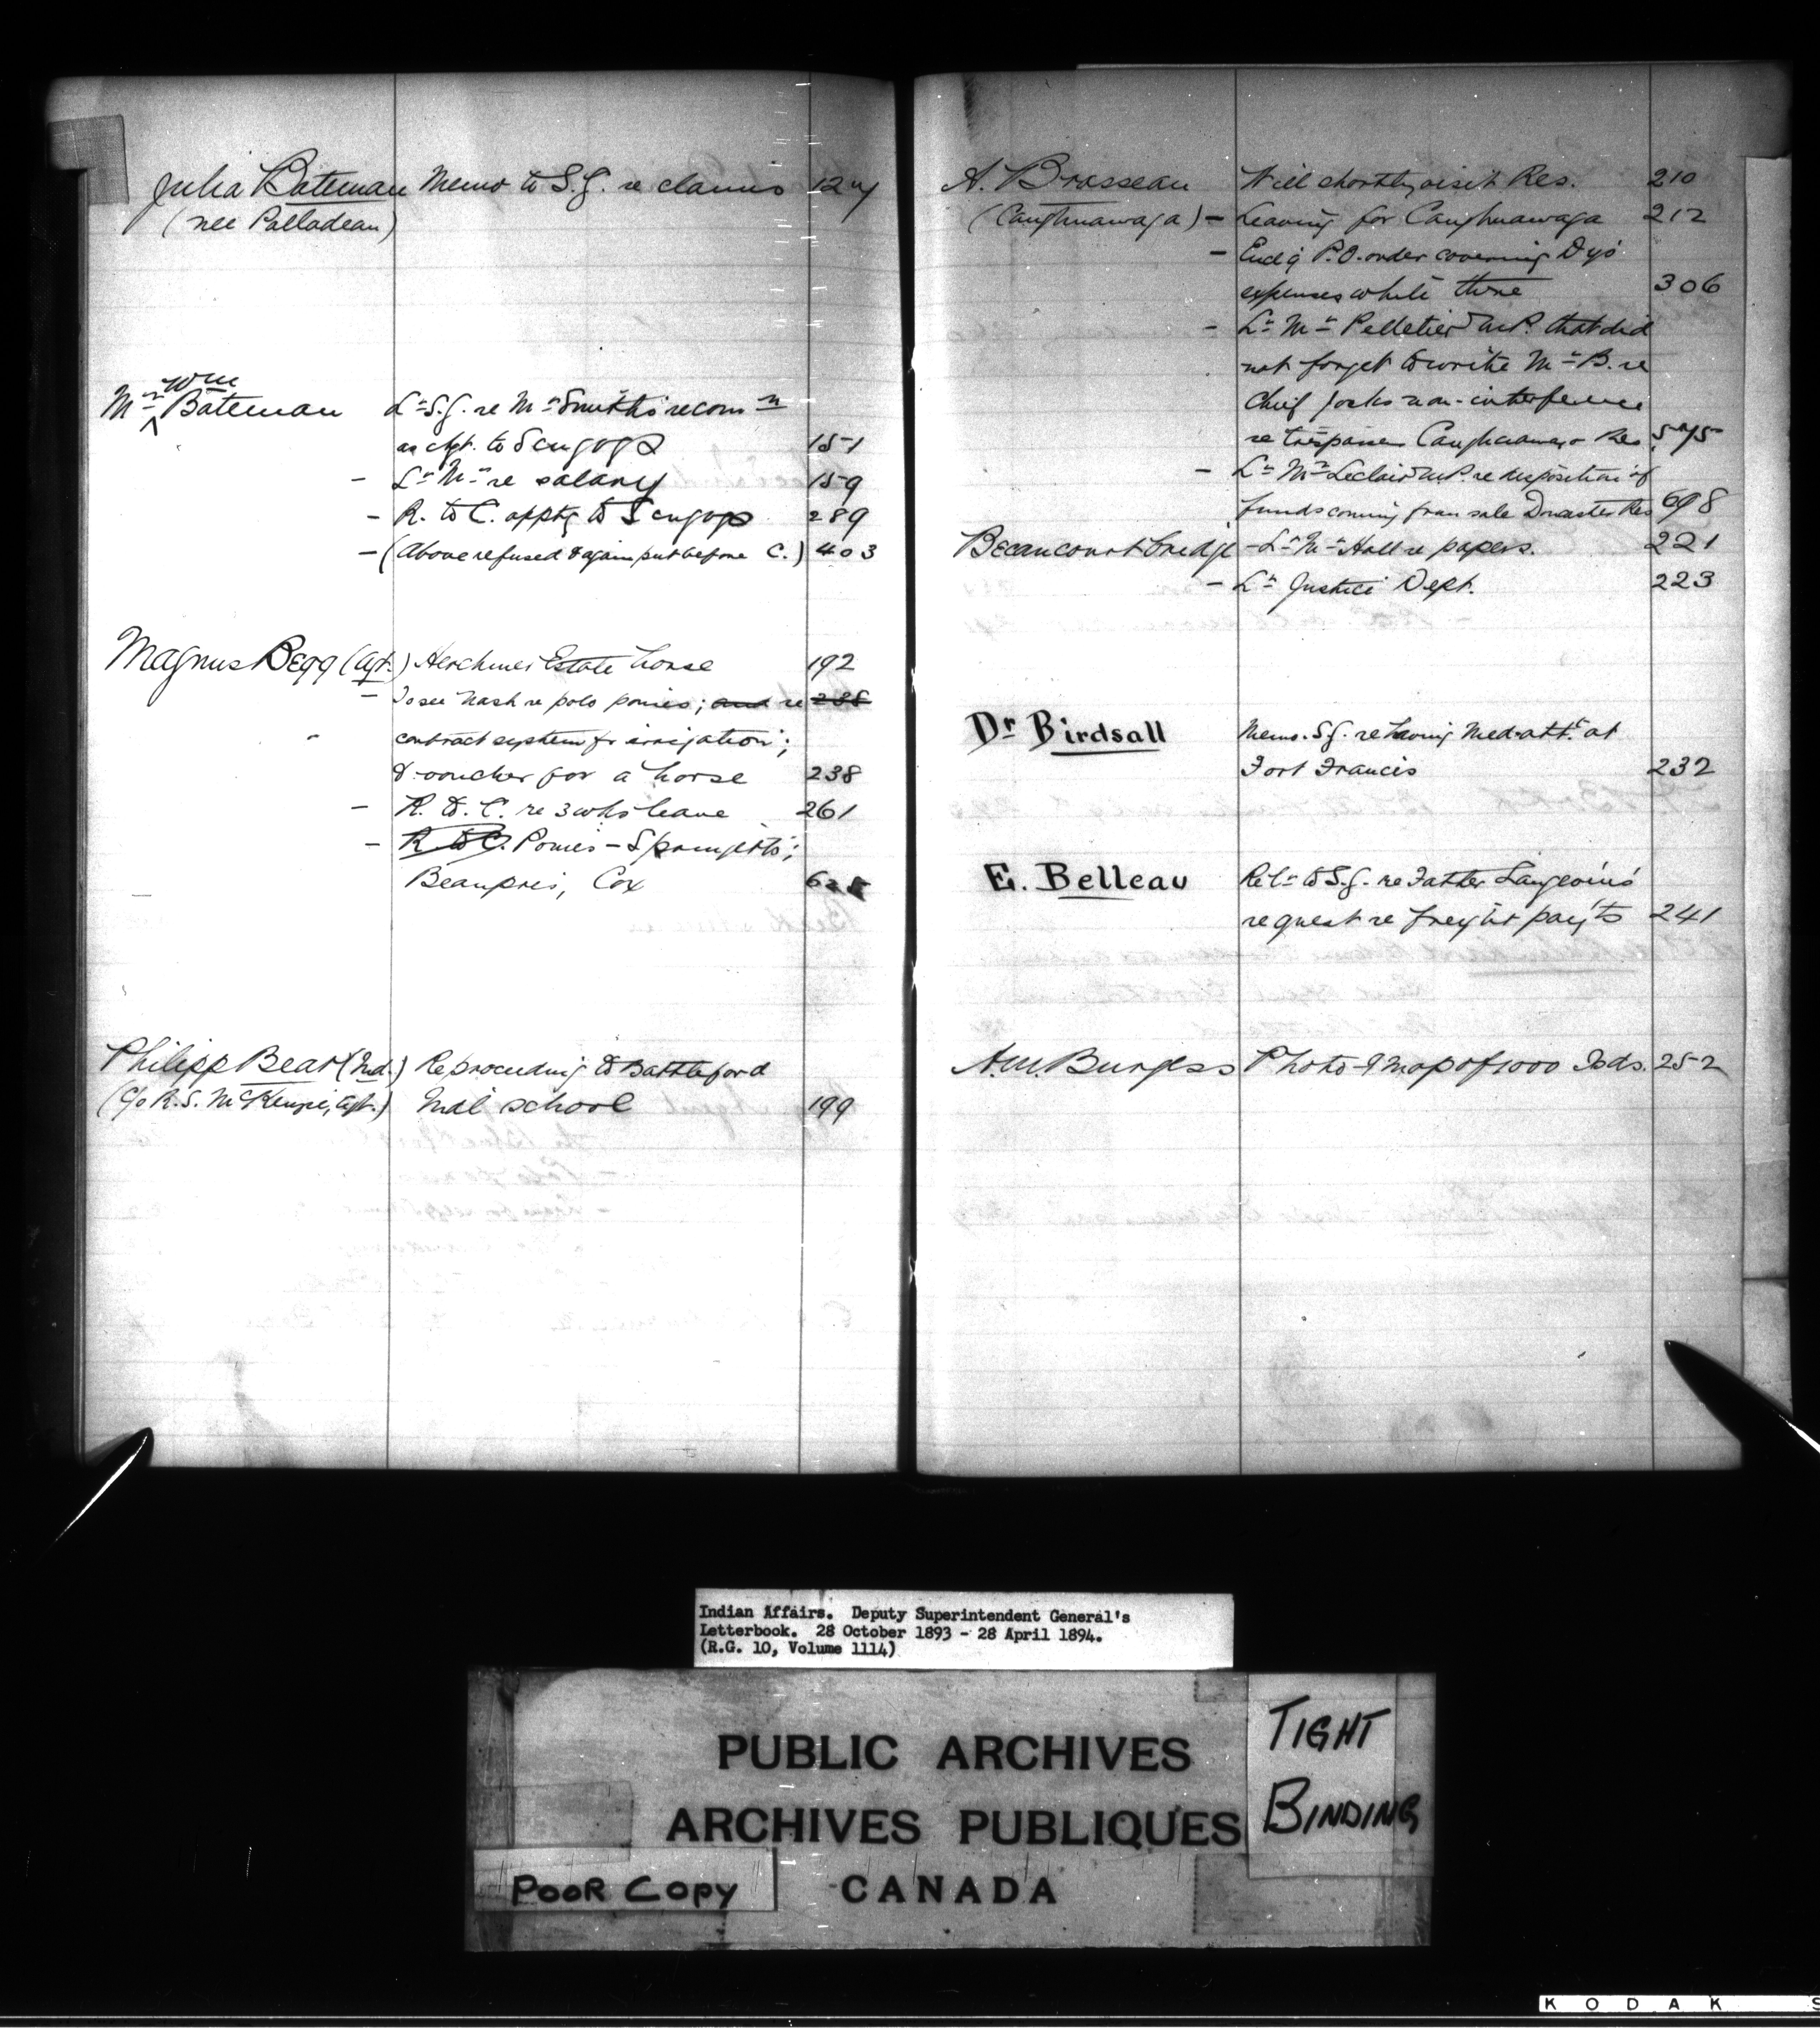 Julia Bateman Memo to S.G. re claims 127
(nee Palladeau)
Wm
Mr Bateman Lr S.G. re Mr Smith's recomn
as Agt. to 151
- Lr Mr re salary 159
- R. to C. apptg to 289
- (Above refused & again put before C.) 403
Magnus Begg (Agt.) Herchmer Estate horse 192
- To see Nash re polo ponies; and re 238
contract system for irrigation;
& voucher for a horse 238
- R. to C. re 3 wks leave 261
- R to C. Ponies - Springett's;
Beaupres, Cox 625
Philipp Bear (Ind.) Re proceeding to Battleford
(c/o R.S. McKenzie, Agt.) Indl school 199
A. Brasseau Will shortly visit Res. 210
(Caughnawaga) - Leaving for Caughnawaga 212
- Encl'g P.O. order covering Dy's
expenses while there 306
- Lr Mr Pelletier M.P. that did
not forget to write Mr B. re
Chief Jocks non-interference
re trespassers Caughnawaga Res. 575
- Lr Mr Leclair M.P. re disposition of
funds coming from sale Doncaster Res 698
Becancourt bridge - Lr Mr Hall re papers. 221
- Lr Justice Dept. 223
Dr Birdsall Memo. S.G. re having Med. att. at
Fort Francis 232
E. Belleau Retn to S.G. re Father Langevin's
request re freight pay'ts 241
A.M. Burgess Photo-d map of 1000 Isds. 252
Indian Affairs. Deputy Superintendent General's
Letterbook. 28 October 1893 - 28 April 1894.
(R.G. 10, Volume 1114)
PUBLIC ARCHIVES
ARCHIVES PUBLIQUES
CANADA
TIGHT
BINDING
POOR COPY
KODAK S